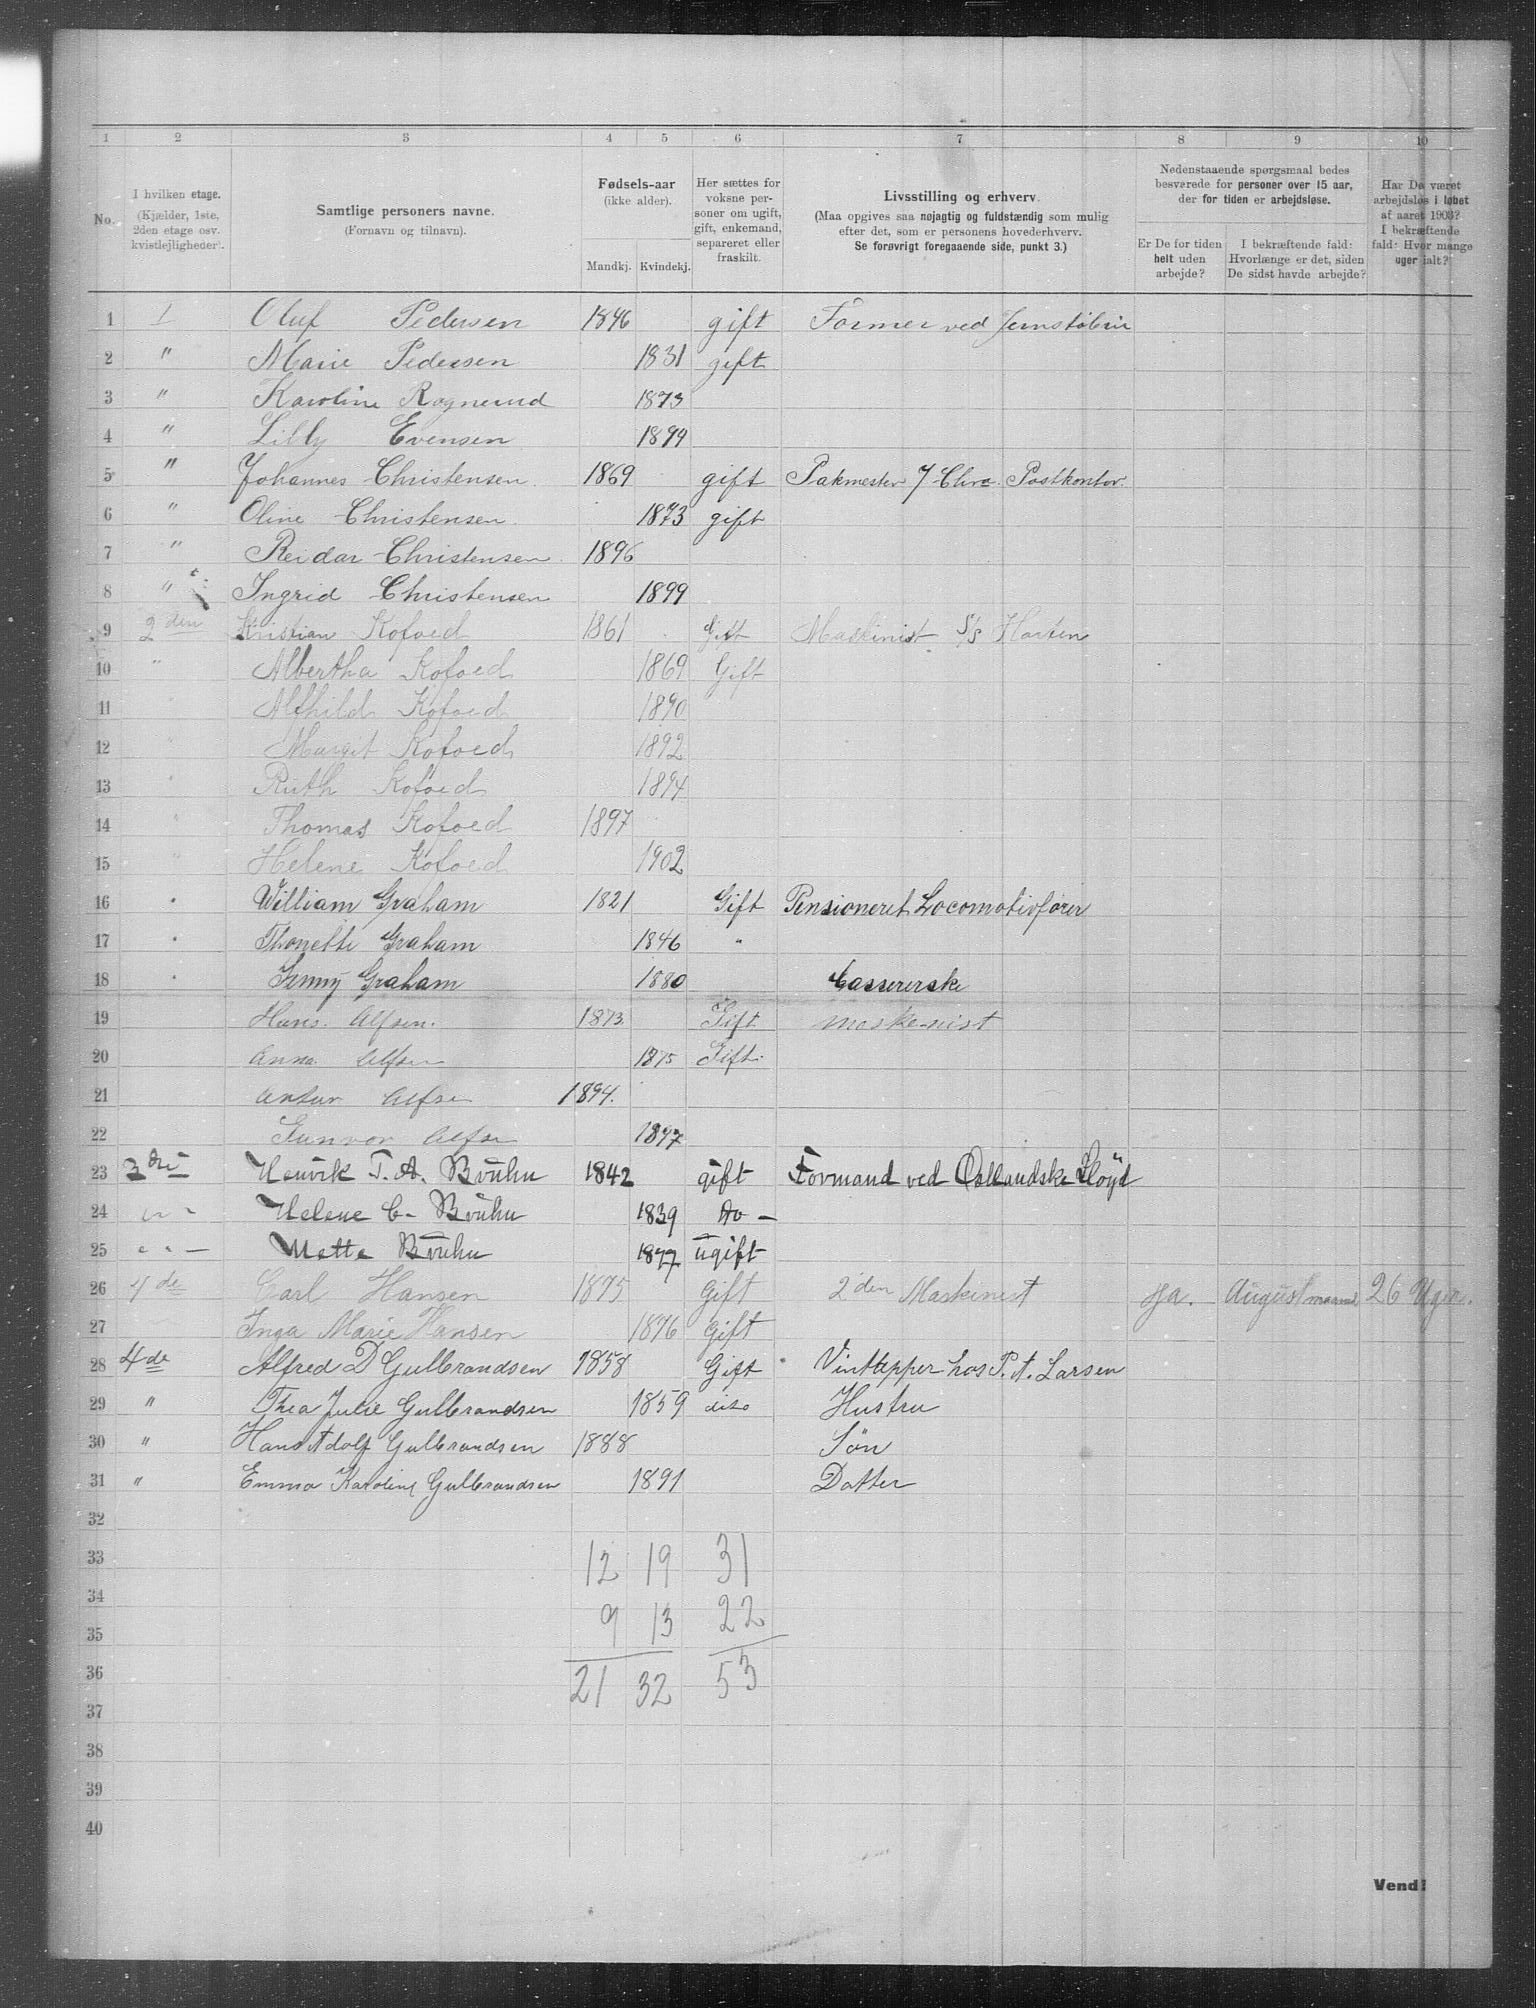 1 2 3 4 5 6 7 8 9 10
No.
I hvilken etage. (Kjælder, 1ste, 2den etage osv. kvistlejligheder).
Samtlige personers navne. (Fornavn og tilnavn).
Fødsels-aar (ikke alder). Mandkj. Kvindekj.
Her sættes for voksne personer om ugift, gift, enkemand, separeret eller fraskilt.
Livsstilling og erhverv. (Maa opgives saa nøjagtig og fuldstændig som mulig efter det, som er personens hovederhverv. Se forøvrigt foregaaende side, punkt 3.)
Nedenstaaende spørgsmaal bedes besværede for personer over 15 aar, der for tiden er arbejdsløse.
Er De for tiden helt uden arbejde?
I bekræftende fald: Hvorlænge er det, siden De sidst havde arbejde?
Har De været arbejdsløs i løbet af aaret 1903? I bekræftende fald: Hvor mange uger ialt?
1 1 Oluf Pedersen 1846 gift Former ved Jernstøberi
2 " Marie Pedersen 1831 gift
3 " Karoline Rognerud 1873
4 " Lilly Evensen 1899
5 " Johannes Christensen 1869 gift Pakmester Chra. Postkontor.
6 " Oline Christensen 1873 gift
7 " Reidar Christensen 1896
8 " Ingrid Christensen 1899
9 2den Kristian Kofoed 1861 Gift Maskinist S/S Horten
10 " Albertha Kofoed 1869 Gift
11 " Alfhild Kofoed 1890
12 " Margit Kofoed 1892
13 " Ruth Kofoed 1894
14 " Thomas Kofoed 1897
15 " Helene Kofoed 1902
16 " William Graham 1821 Gift Pensioneret Locomotivfører
17 " Thonette Graham 1846 "
18 " Jenny Graham 1880 Cassererske
19 Hans. Alfsen. 1873 Gift maskenist
20 Anna Alfsen 1875 Gift.
21 Artur Alfsen 1894.
22 Gunvor Alfsen 1897
23 3die Henrik T. A. Bruhn 1842 gift Formand ved Oplandske Lloyd
24 " - Helene C. Bruhn 1839 do -
25 " - Mette Bruhn 1877 ugift
26 4de Carl Hansen 1875 Gift 2den Maskinist Ja. August maaned 26 Uger.
27 Inga Marie Hansen 1876 Gift
28 4de Alfred D Gulbrandsen 1858 Gift Vintapper hos P. A. Larsen
29 " Thea Julie Gulbrandsen 1859 dito Hustru
30 " Hans Adolf Gulbrandsen 1888 Søn
31 " Emma Karoline Gulbrandsen 1891 Datter
32
33 12 19 31
34
35 9 13 22
36 21 32 53
37
38
39
40
Vend!